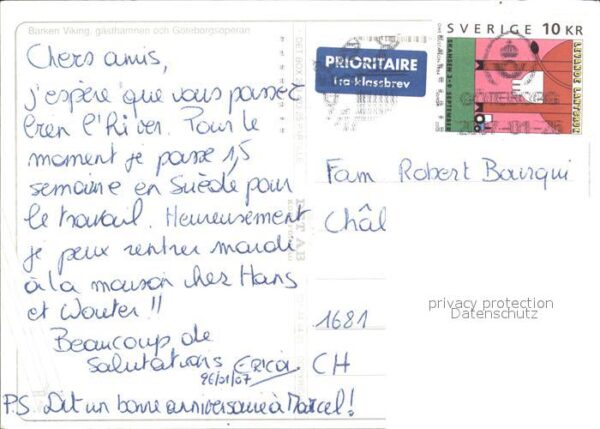 Barken Viking, gästhamnen och Göteborgsoperan
Chers amis,
j'espère que vous passez
bien l'hiver. Pour le
moment je passe 1,5
semaine en Suède pour
le travail. Heureusement
je peux rentrer mardi
à la maison chez Hans
et Wouter !!
Beaucoup de
salutations Erica
26/01/07
P.S. Dit un bonne anniversaire à Marcel!
PRIORITAIRE
1:a-klassbrev
SVERIGE 10 KR
SKANSEN 3-9 SEPTEMBER
GÖTEBORG
Fam Robert Bourqui
Châl
1681
CH
privacy protection
Datenschutz